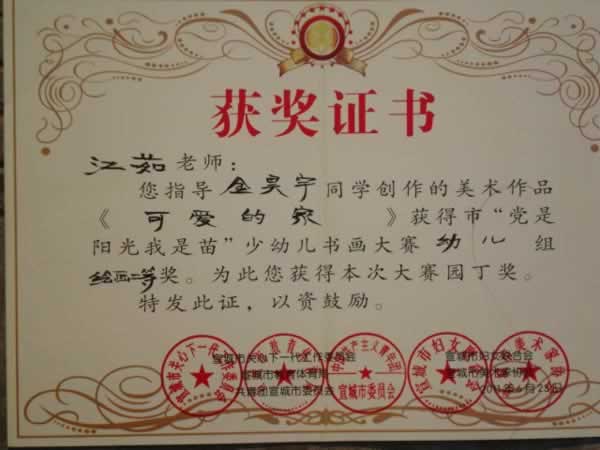 获奖证书
江茹老师：
您指导金昊宇同学创作的美术作品
《可爱的家》获得市“党是
阳光我是苗”少幼儿书画大赛幼儿组
绘画二等奖。为此您获得本次大赛园丁奖。
特发此证，以资鼓励。
宣城市关心下一代工作委员会 宣城市妇女联合会
宣城市教育体育局 宣城市美术家协会
共青团宣城市委员会
宣城市关心下一代工作委员会
中国共产主义青年团
宣城市委员会